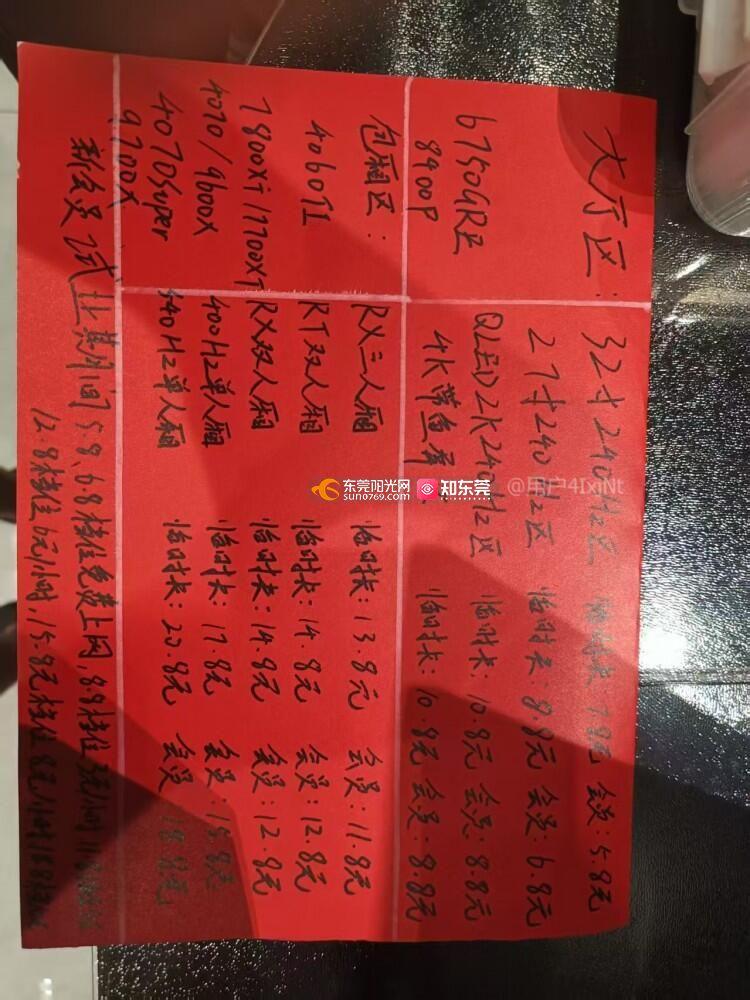 大厅区: 32寸240Hz区 临时卡 7.8元 会员:5.8元
27寸240Hz区 临时卡:8.8元 会员:6.8元
6750GRE QLED2K240Hz区 临时卡:10.8元 会员:8.8元
8400P 4K带鱼屏 临时卡:10.8元 会员:8.8元
包厢区: RX三人厢 临时卡:13.8元 会员:11.8元
4060TI RT双人厢 临时卡:14.8元 会员:12.8元
7800XT/7700XT RX双人厢 临时卡:14.8元 会员:12.8元
4070/9600X 400Hz单人厢 临时卡:17.8元 会员:15.8元
4070Super 540Hz单人厢 临时卡:20.8元 会员:18.8元
9700X
新会员 试业期间 5.8,6.8档位免费上网,8.8档位3元/小时 11.8档位
12.8档位6元/小时,15.8元档位8元/小时
东莞阳光网 知东莞
sun0769.com
@用户4IxjNt